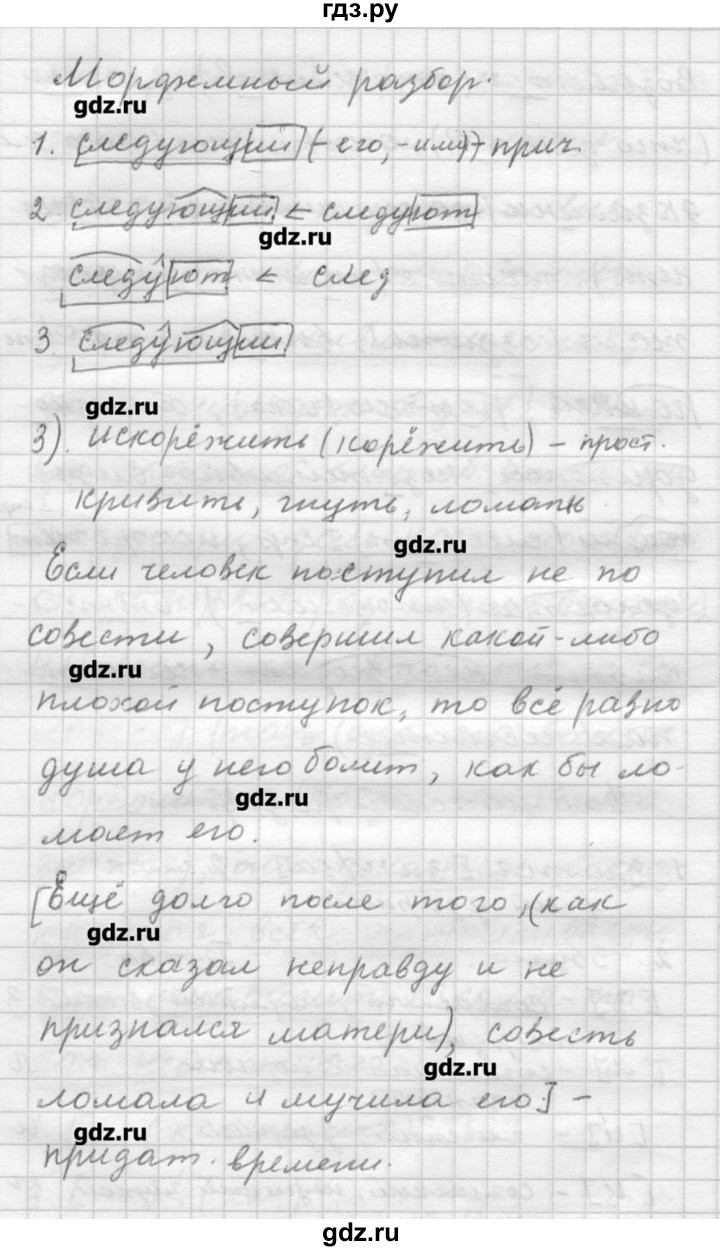 гдз.ру
Морфемный разбор.
gdz.ru
1. следующий (-его, -ими) - прич.
2 следующий < следуют
gdz.ru
следуют < след
3 следующий
gdz.ru
3). искорёжить (корёжить) - прост.
кривить, гнуть, ломать
gdz.ru
Если человек поступил не по
совести, совершил какой-либо
gdz.ru
плохой поступок, то всё равно
душа у него болит, как бы ло-
gdz.ru
мает его.
[Ещё долго после того, (как
gdz.ru
он сказал неправду и не
признался матери), совесть
gdz.ru
ломала и мучила его] -
gdz.ru
придат. времени.
gdz.ru